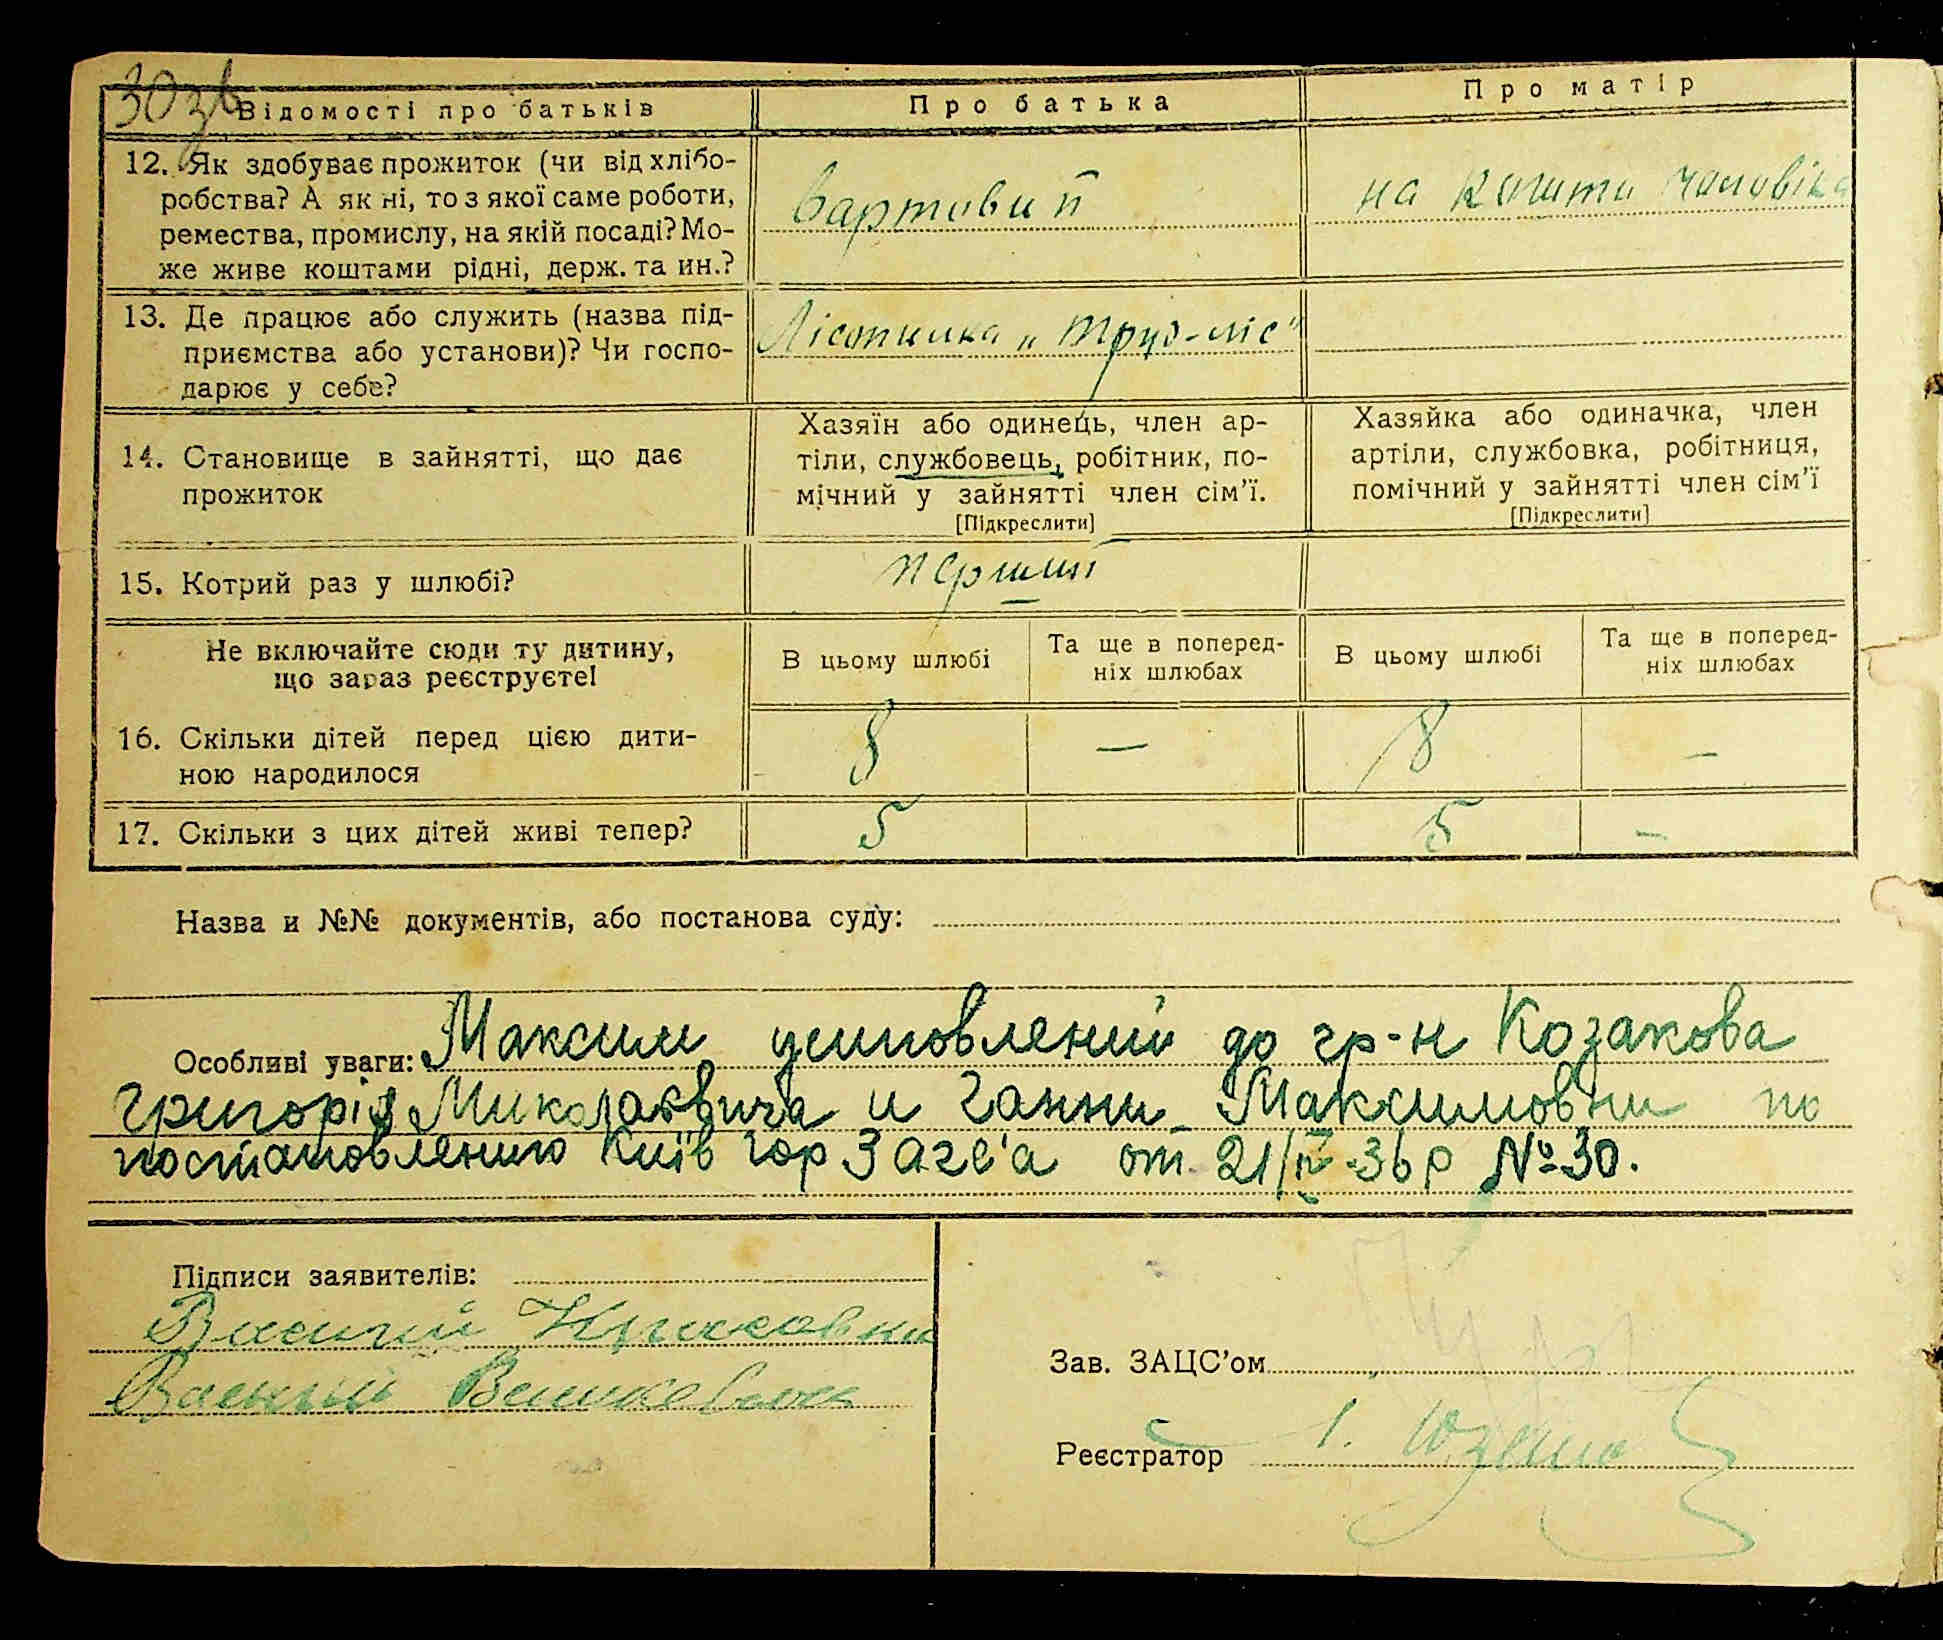 30зв
Відомості про батьків
Про батька
Про матір
12. Як здобуває прожиток (чи від хлібо-
робства? А як ні, то з якої саме роботи,
ремества, промислу, на якій посаді? Мо-
же живе коштами рідні, держ. та ин.?
Вартовий
на кошти чоловіка
13. Де працює або служить (назва під-
приємства або установи)? Чи госпо-
дарює у себе?
Лісопилка „Труд-ліс"
14. Становище в зайнятті, що дає
прожиток
Хазяїн або одинець, член ар-
тіли, службовець, робітник, по-
мічний у зайнятті член сім'ї.
[Підкреслити]
Хазяйка або одиначка, член
артіли, службовка, робітниця,
помічний у зайнятті член сім'ї
[Підкреслити]
15. Котрий раз у шлюбі?
перший
Не включайте сюди ту дитину,
що зараз реєструєте!
В цьому шлюбі
Та ще в поперед-
ніх шлюбах
В цьому шлюбі
Та ще в поперед-
ніх шлюбах
16. Скільки дітей перед цією дити-
ною народилося
8 — 8 —
17. Скільки з цих дітей живі тепер?
5 5 —
Назва и №№ документів, або постанова суду:
Особливі уваги: Максим усиновлений до гр-н Козакова
Григорія Миколаєвича и Ганни Максимовни по
постановлению Київ гор Загс'а от 21/IV-36 р №30.
Підписи заявителів:
Василий
Василий
Зав. ЗАЦС'ом
Реєстратор